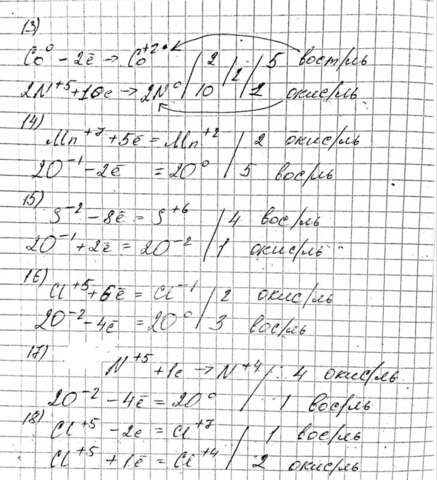 13)
Co⁰ - 2ē → Co⁺² / 2 / 2 / 5 вост/ль
2N⁺⁵ + 10e → 2N⁰ / 10 / / 1 окис/ль
14)
Mn⁺⁷ + 5ē = Mn⁺² / 2 окис/ль
2O⁻¹ - 2ē = 2O⁰ / 5 вос/ль
15)
S⁻² - 8ē = S⁺⁶ / 4 вос/ль
2O⁻¹ + 2ē = 2O⁻² / 1 окис/ль
16)
Cl⁺⁵ + 6ē = Cl⁻¹ / 2 окис/ль
2O⁻² - 4ē = 2O⁰ / 3 вос/ль
17)
N⁺⁵ + 1e → N⁺⁴ / 4 окис/ль
2O⁻² - 4ē = 2O⁰ / 1 вос/ль
18)
Cl⁺⁵ - 2e = Cl⁺⁷ / 1 вос/ль
Cl⁺⁵ + 1ē = Cl⁺⁴ / 2 окис/ль